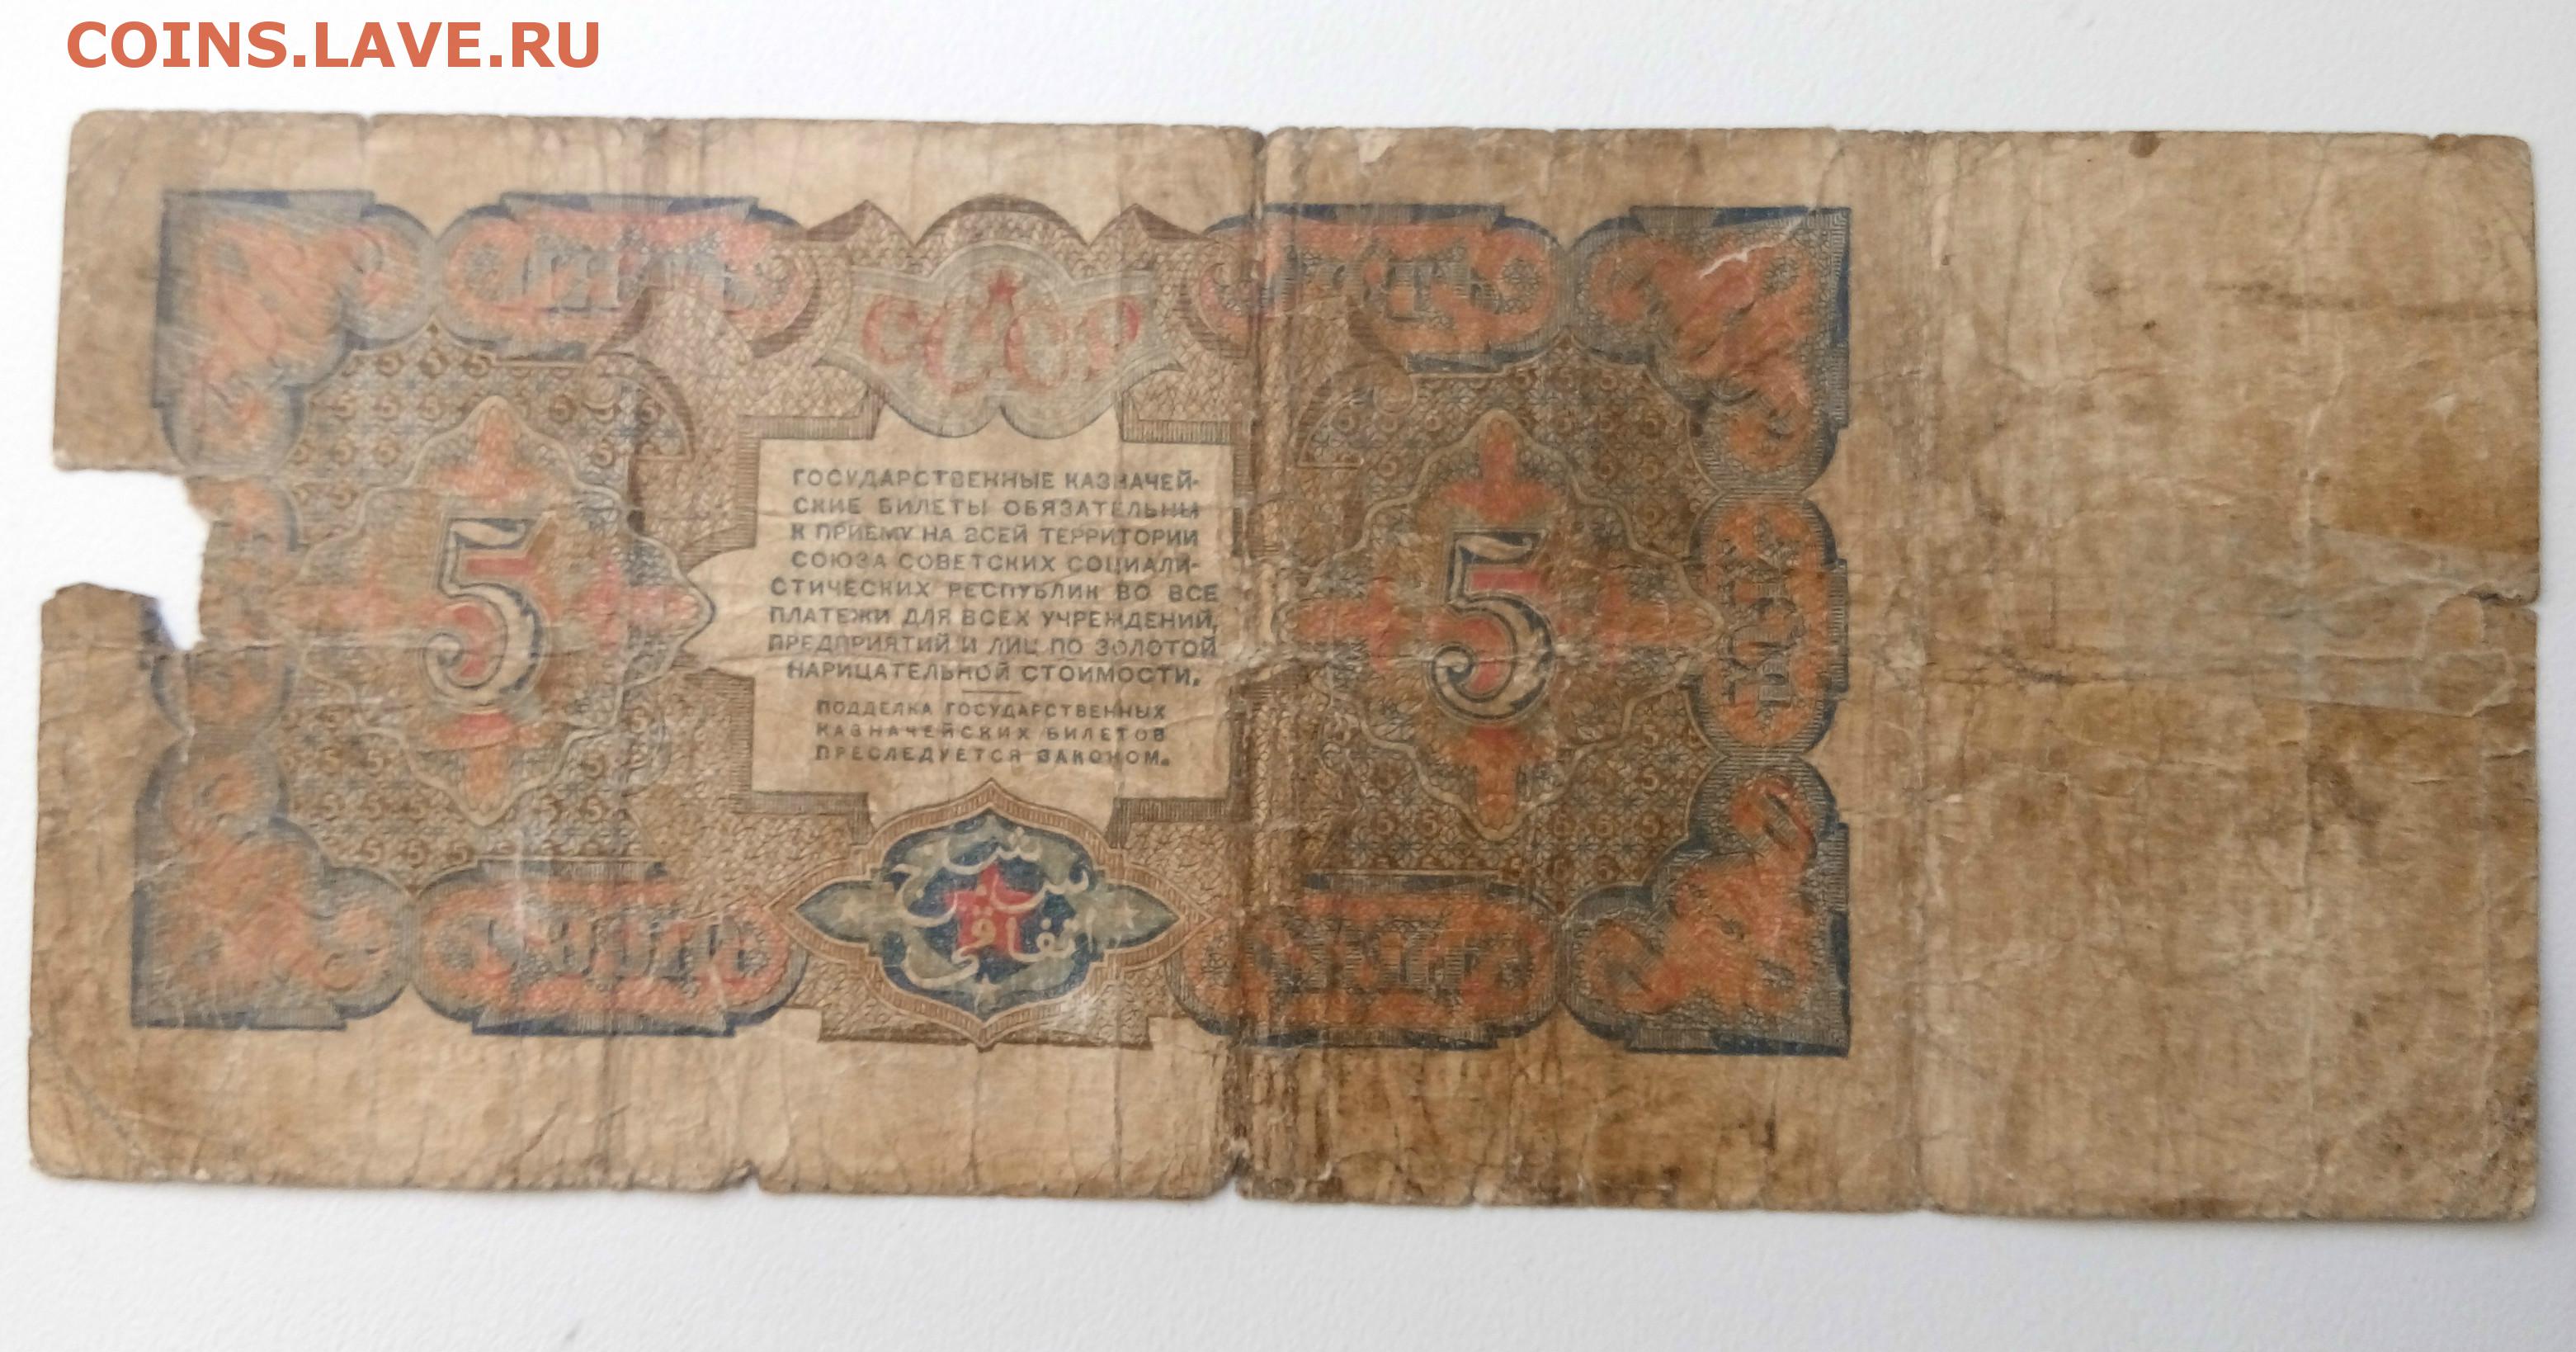 COINS.LAVE.RU
ПЯТЬ
СССР
ПЯТЬ
5
5
ГОСУДАРСТВЕННЫЕ КАЗНАЧЕЙ-
СКИЕ БИЛЕТЫ ОБЯЗАТЕЛЬНЫ
К ПРИЕМУ НА ВСЕЙ ТЕРРИТОРИИ
СОЮЗА СОВЕТСКИХ СОЦИАЛИ-
СТИЧЕСКИХ РЕСПУБЛИК ВО ВСЕ
ПЛАТЕЖИ ДЛЯ ВСЕХ УЧРЕЖДЕНИЙ,
ПРЕДПРИЯТИЙ И ЛИЦ ПО ЗОЛОТОЙ
НАРИЦАТЕЛЬНОЙ СТОИМОСТИ.
ПОДДЕЛКА ГОСУДАРСТВЕННЫХ
КАЗНАЧЕЙСКИХ БИЛЕТОВ
ПРЕСЛЕДУЕТСЯ ЗАКОНОМ.